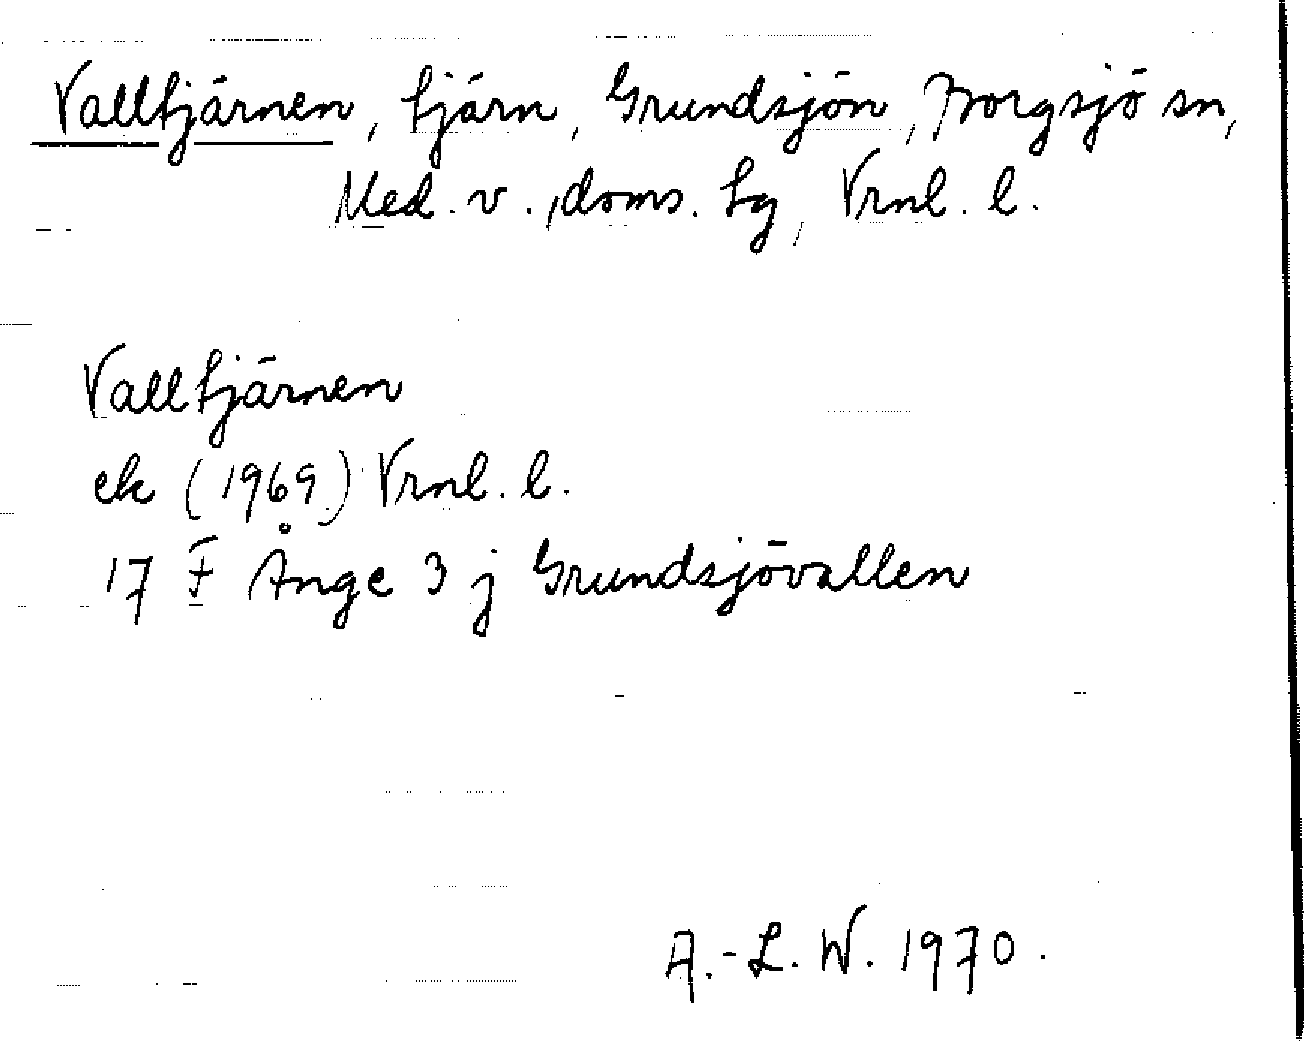 Valltjärnen, tjärn, Grundsjön, Borgsjö sn,
Med. v., doms. tg, Vrnl. l.
Valltjärnen
ek (1969) Vrnl. l.
17 F Ånge 3 j Grundsjövallen
A.-L. W. 1970.